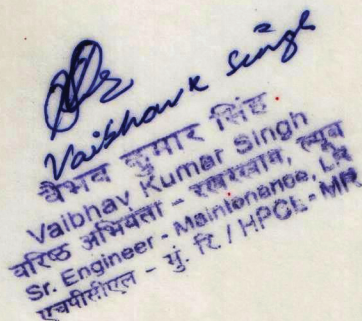 Vaibhav k singh
वैभव कुमार सिंह
Vaibhav Kumar Singh
वरिष्ठ अभियंता - रखरखाव, ल्यूब
Sr. Engineer - Maintenance, LR
एचपीसीएल - मुं. रि. / HPCL - MR